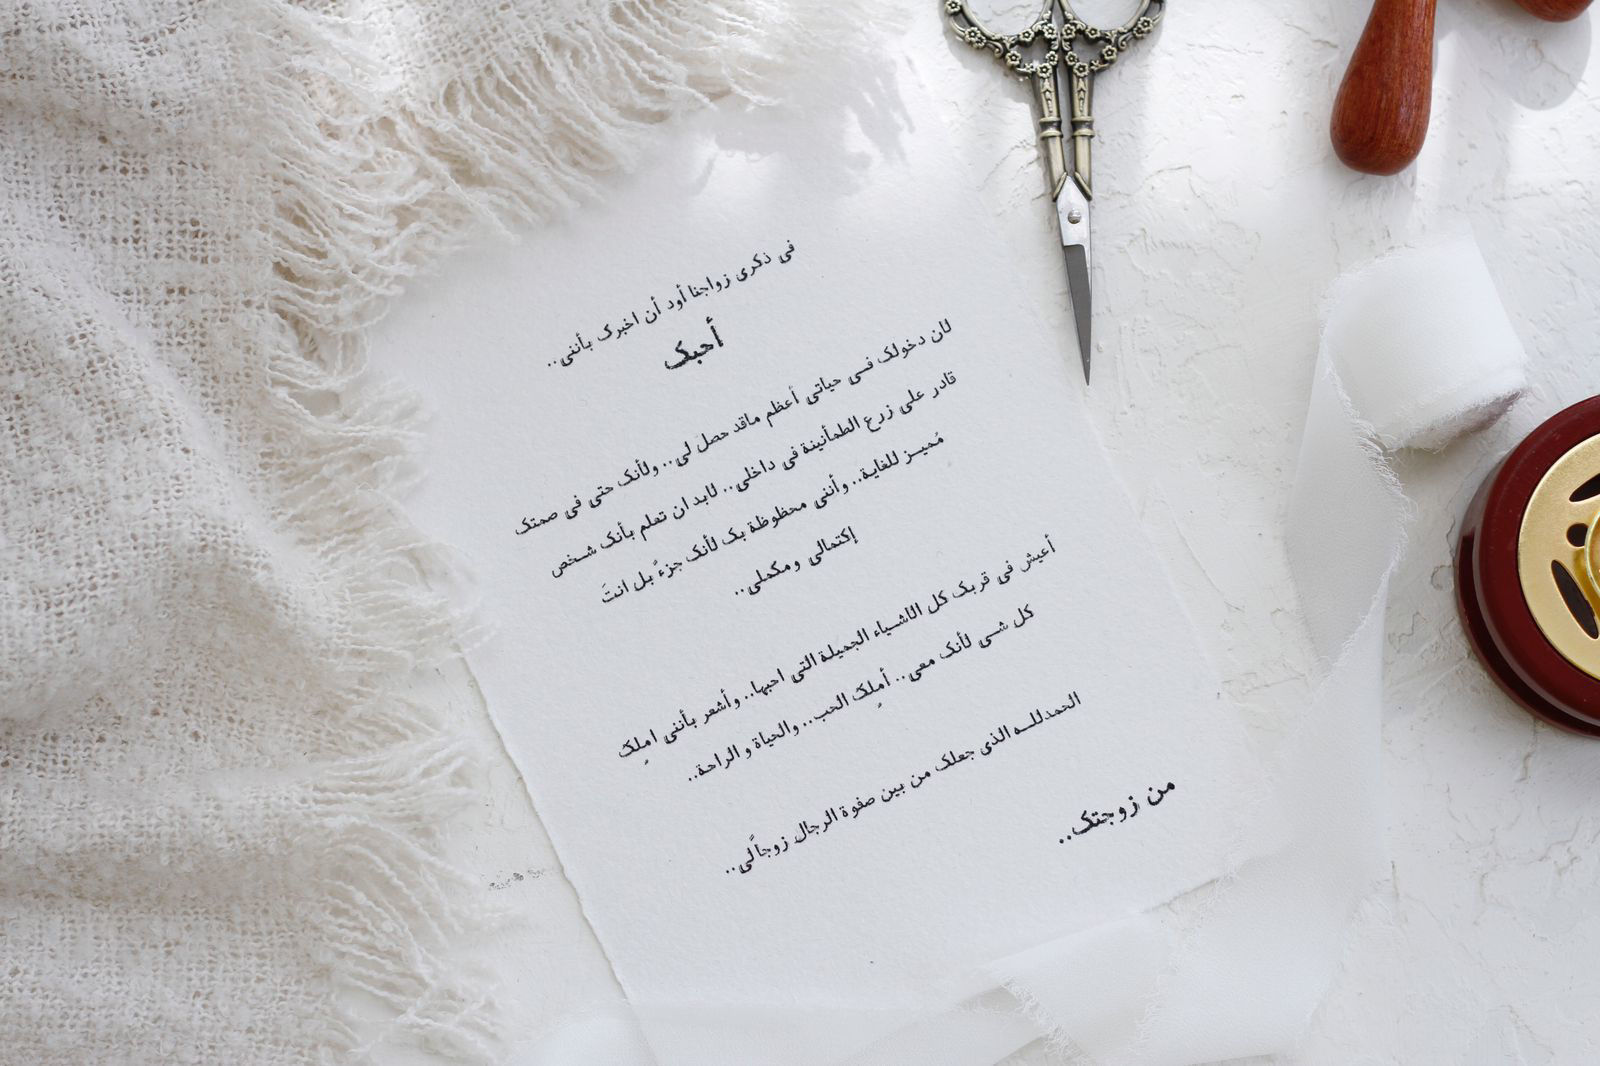 في ذكرى زواجنا أود أن اخبرك بأنني..
أحبك
لان دخولك فـي حياتي أعظم ماقد حصل لي.. ولأنك حتى في صمتك
قادر على زرع الطمأنينة في داخلي.. لابد ان تعلم بأنك شـخص
مُميـز للغاية.. وأنني محظوظة بك لأنك جزءً بل انتَ
إكتمالي ومكملي..
أعيش في قربك كل الاشـياء الجميلة التي احبها.. وأشعر بأنني املِك
كل شـي لأنك معي.. أملِك الحب.. والحياة و الراحة..
الحمدللـه الذي جعلك من بين صفوة الرجال زوجاً لي..
من زوجتك..